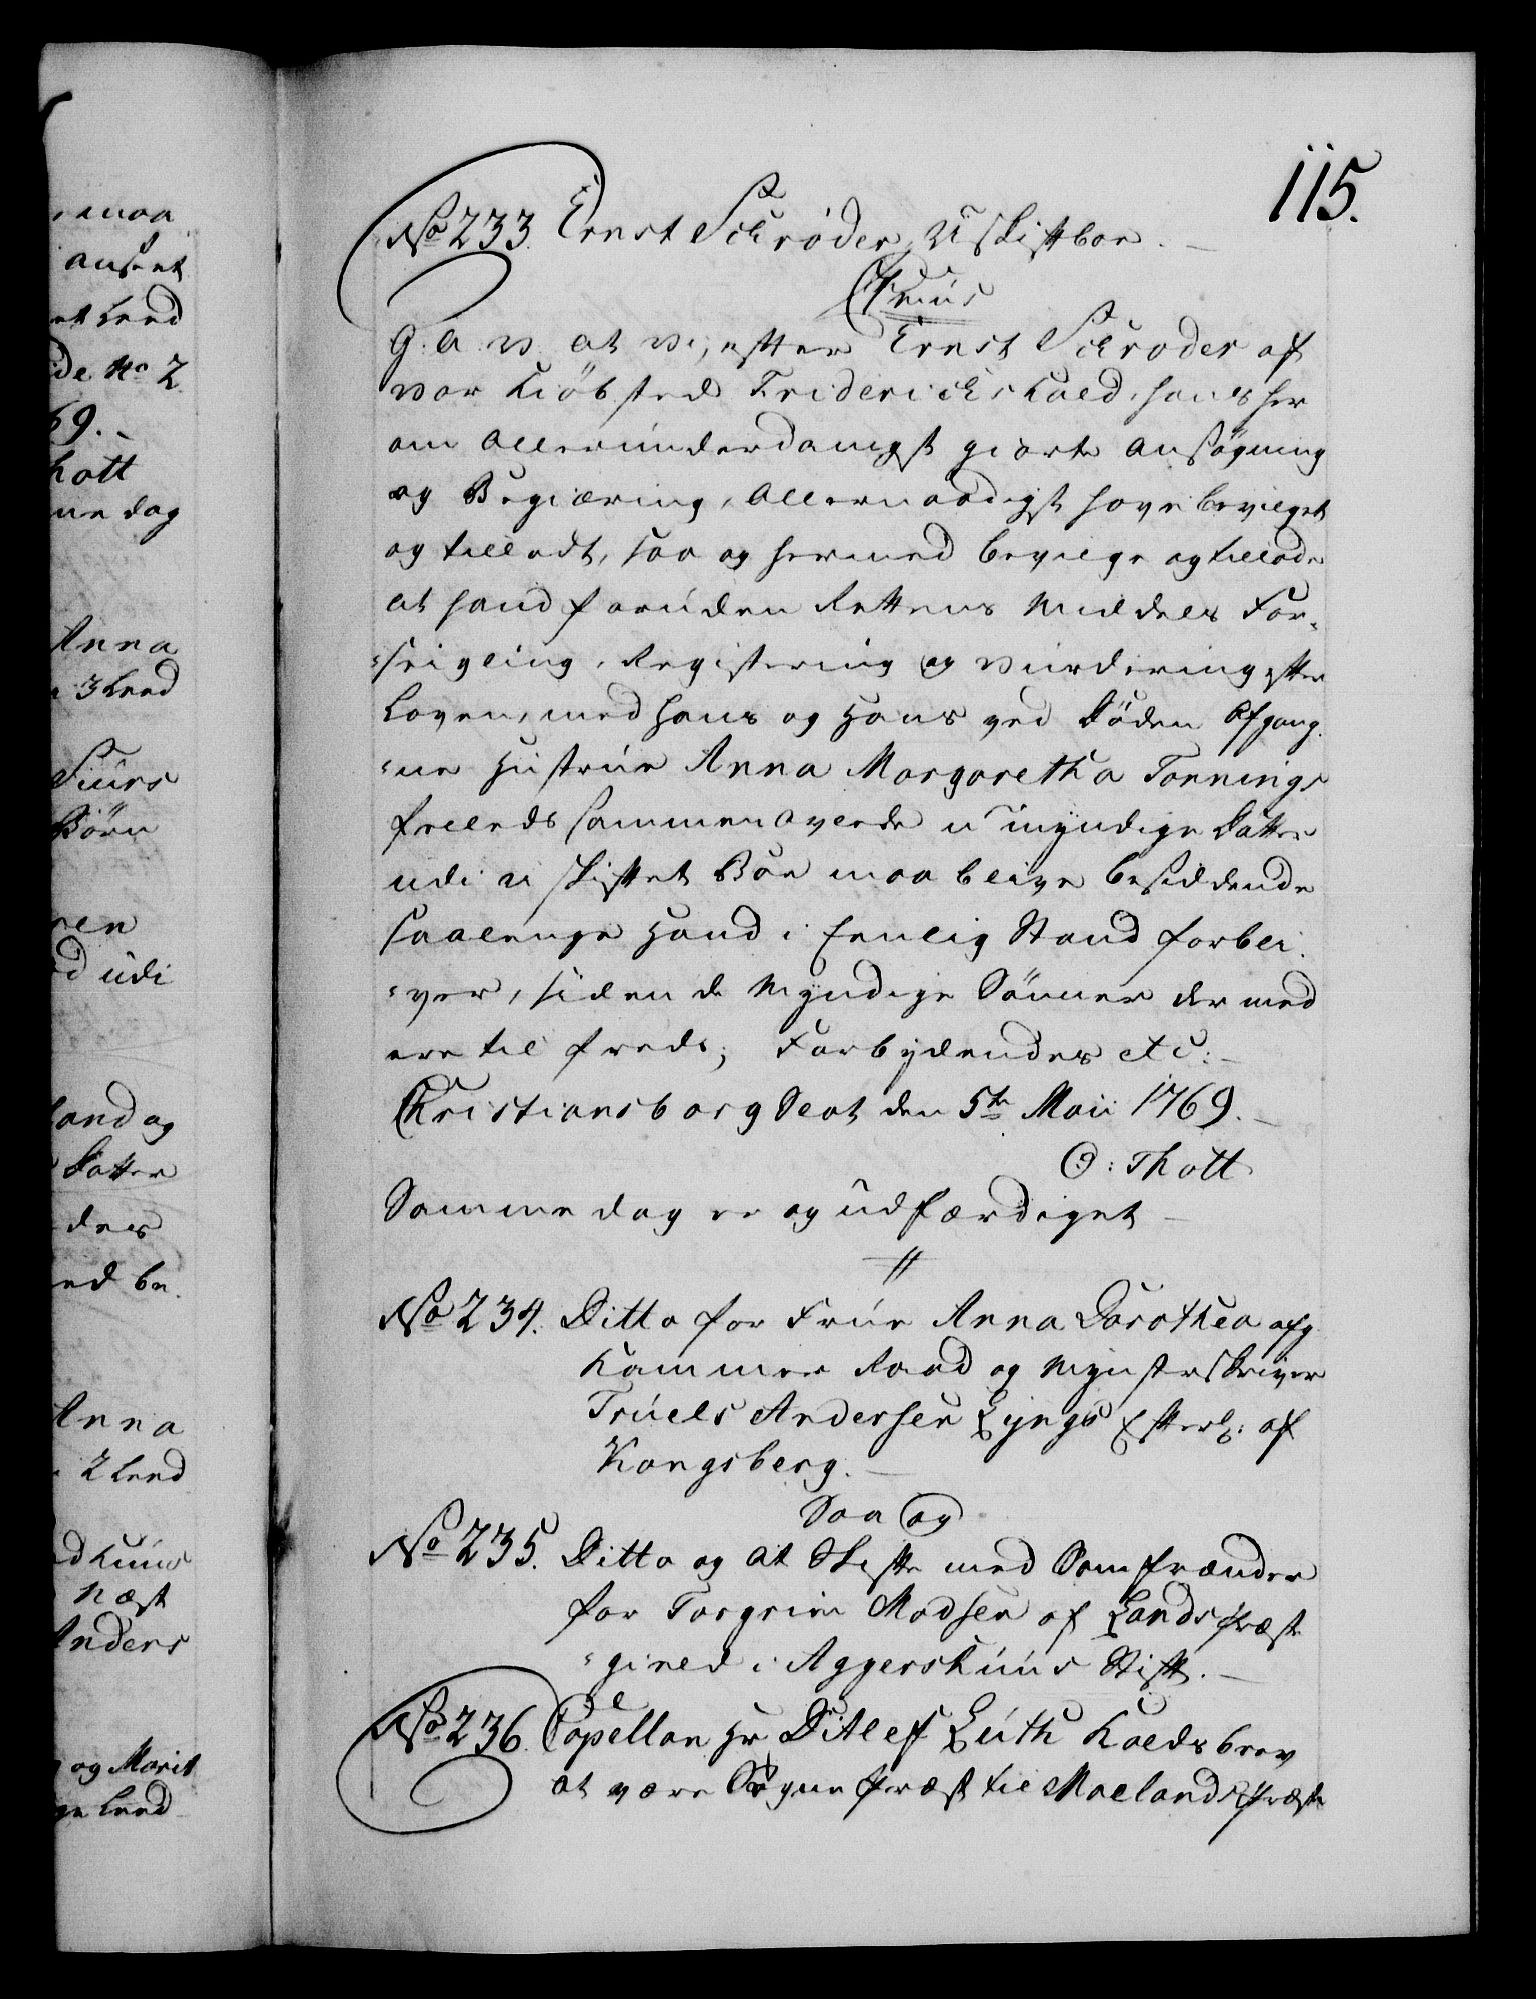 115.
No 233. Ernst Schrøder, U Skiftboe.
C7mus
G. a. v. at vi, efter Ernst Schroder af
vor Kiöbsted Friderichshald, hans her
om allerunderdanigst giorte Ansøgning
og Begiæring, Allernaadigst have bevilget
og tilladt, saa og hermed bevilge og tillade
at hand foruden Rettens Middels For-
=seigling, Registering og Vurdering efter
Loven, med hans og Hans ved Døden Afgang-
=ne Hustrue Anna Margaretha Tonnings
fælleds sammenavlede umyndige Datter
udi u skiftet Boe maa blive besiddende
saalenge Hand i Eenlig Stand forbli-
=ver, siden de Myndige Sönner der med
ere til freds; Forbydendes etc:
Christiansborg Slot den 5te Maii 1769.
O: Thott
Samme dag er og udfærdiget
No 234. Ditto for Frue Anna Dorothea afg
Kammer Raad og Myntskriver
Truels Andersen Lyngs Efterl: af
Kongsberg.
Saa og
No 235. Ditto og at Skifte med Samfrænder
for Torgrim Madsen af Lands Præste
=gield i Aggershuus Stift.
No 236. Capellan Hr Ditlef Leuth Kaldsbrev
at være Sogne Præst til Mælands Præste
, maa
anseet
et Leed
ide No 2
69.
hott
me dag
Anna
3 Leed
Siurs
Børn
d udi
and og
Datter
des
ed be-
Anna
2 Leed
d huus
næst
Anders
og Marit
ge Leed